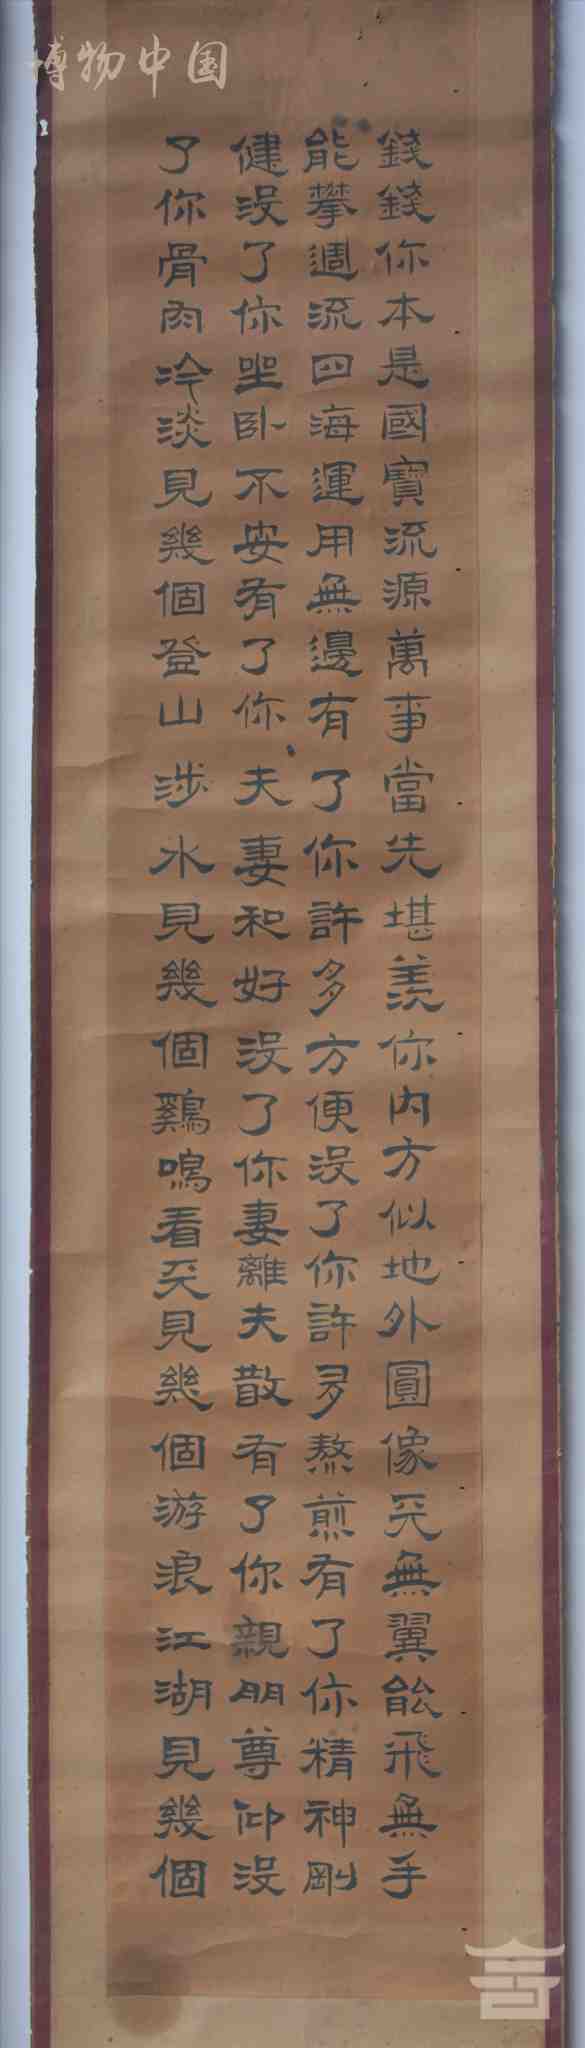 博物中国
錢錢你本是國寶流源萬事當先堪羨你内方似地外圓像天無翼能飛無手
能攀週流四海運用無邊有了你許多方便没了你許多熬煎有了你精神剛
健没了你坐卧不安有了你夫妻和好没了你妻離夫散有了你親朋尊仰没
了你骨肉冷淡見幾個登山涉水見幾個鷄鳴看天見幾個游浪江湖見幾個